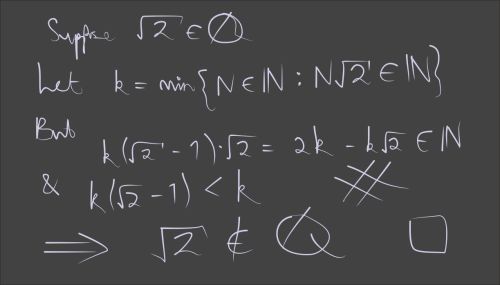 Suppose √2 ∈ ℚ
Let k = min{N ∈ ℕ : N√2 ∈ ℕ}
But k(√2 - 1)·√2 = 2k - k√2 ∈ ℕ
& k(√2 - 1) < k
⟹ √2 ∉ ℚ □